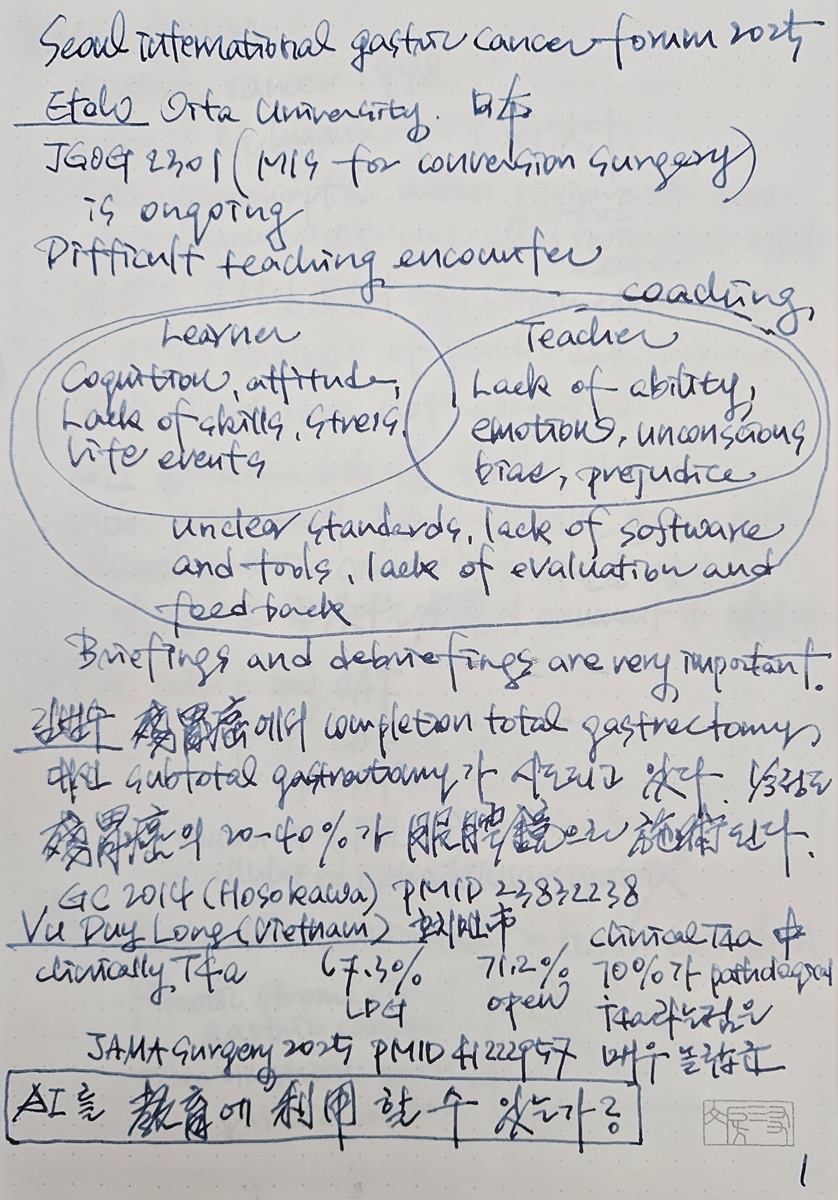 Seoul international gastric cancer forum 2025
Etoh Oita University. 日本
JGOG 2301 (MIS for conversion surgery)
is ongoing
Difficult teaching encounter
coaching,
Learner
Cognition, attitude,
Lack of skills, stress,
life events
Teacher
Lack of ability,
emotions, unconscious
bias, prejudice
unclear standards, lack of software
and tools, lack of evaluation and
feedback
Briefings and debriefings are very important.
김범수 殘胃癌에서 completion total gastrectomy
대신 subtotal gastrectomy가 시도되고 있다.
殘胃癌의 20-40%가 腹腔鏡으로 施術된다.
GC 2014 (Hosokawa) PMID 23832238
Vu Duy Long (Vietnam) 호치민市
clinically T4a 67.3% 71.2%
LDG open
clinical T4a 中
70%가 pathological
T4a라는점은
매우 놀랍군
JAMA Surgery 2025 PMID 41222957
AI를 敎育에 利用할 수 있는가?
1